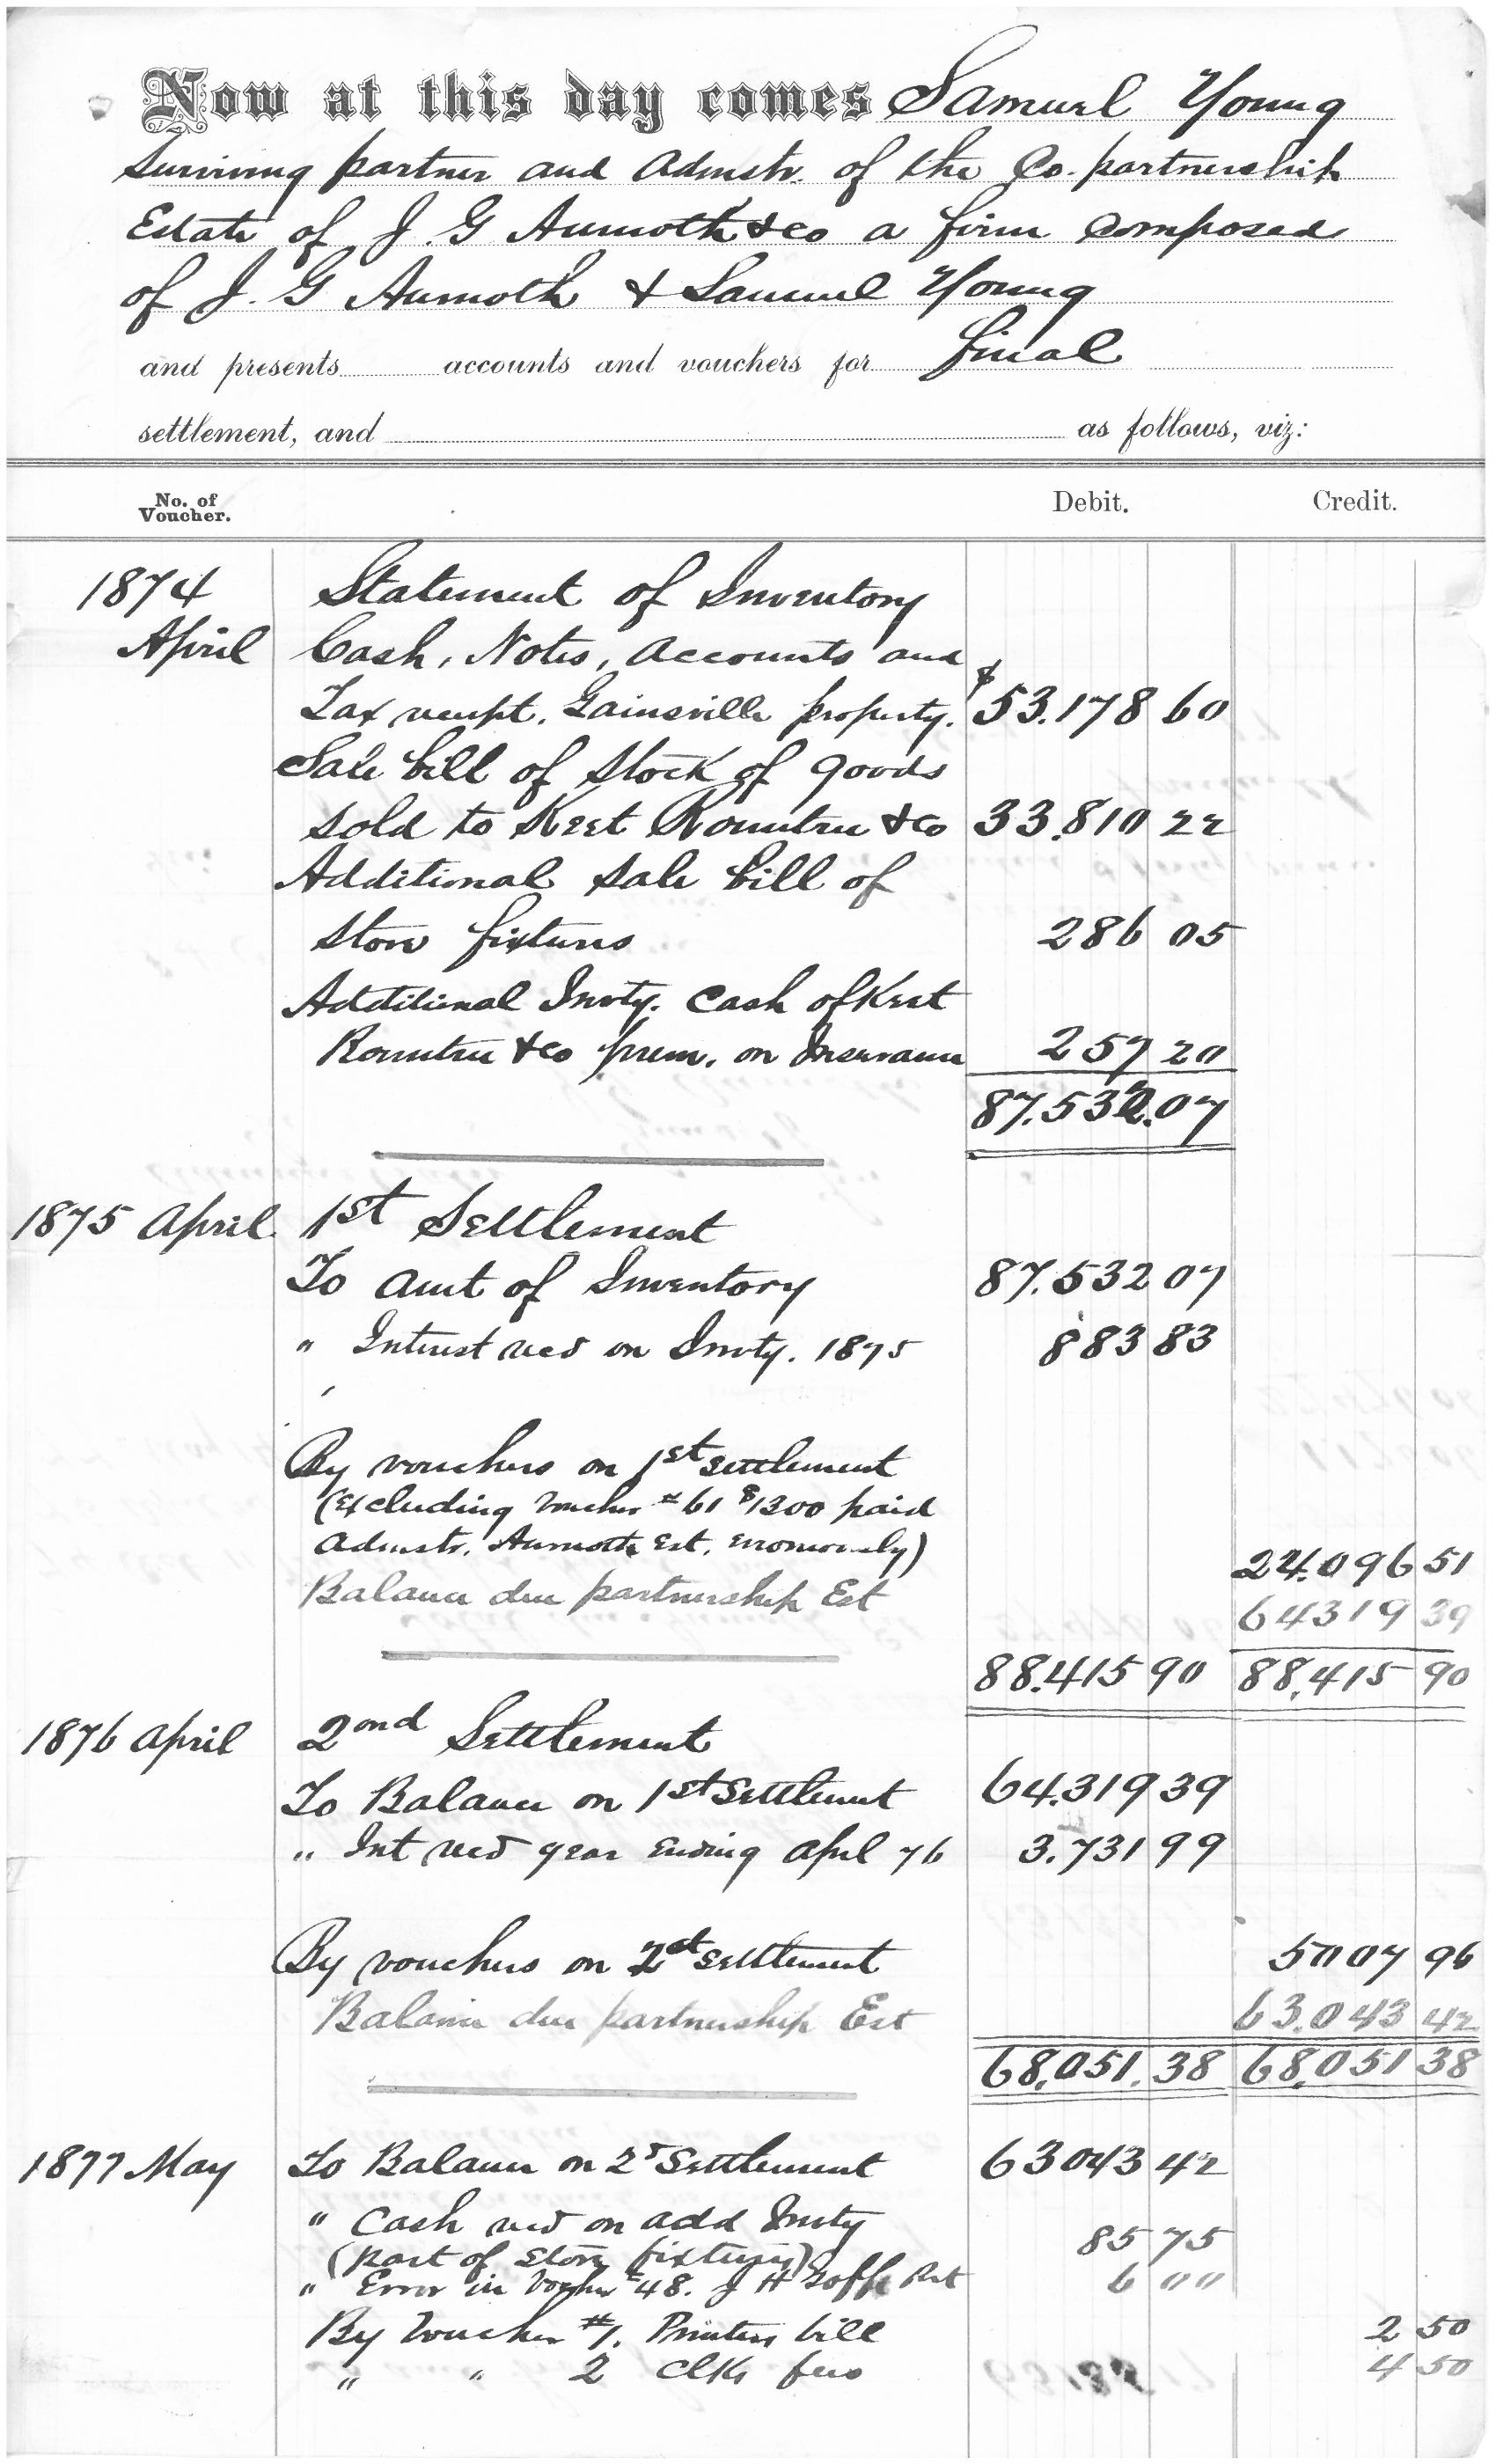 Now at this day comes Samuel Young
Surviving partner and Admstr. of the Co. partnership
Estate of J. G Aumoth & co a firm composed
of J. G Aumoth & Samuel Young
and presents accounts and vouchers for final
settlement, and as follows, viz:
No. of Voucher. Debit. Credit.
1874 Statement of Inventory
April Cash, Notes, Accounts and
Tax receipt, Gainsville property. $53.178 60
Sale bill of Stock of goods
sold to Keet Rountree & co 33.810 22
Additional Sale bill of
Store fixtures 286 05
Additional Invty. Cash of Keet
Rountree & co prem. on Insurance 257 20
87.532.07
1875 April 1st Settlement
To amt of Inventory 87.532 07
" Interest recd on Invty. 1875 883 83
By vouchers on 1st Settlement
(Excluding voucher # 61 $1300 paid
Admstr. Aumoth Est. erroneously) 24.096 51
Balance due partnership Est 64319 39
88.415 90 88,415 90
1876 April 2ond Settlement
To Balance on 1st Settlemt 64.319 39
" Int recd year ending Apl 76 3.731 99
By vouchers on 2d Settlement 5007 96
Balance due partnership Est 63.043 42
68,051.38 68,051 38
1877 May To Balance on 2d Settlement 63043 42
" Cash recd on add Invty
(part of Store fixtures) 85 75
" Error in Voucher #48. J H Goffe 6 00
By Voucher #1. Printers bill 2 50
" " 2 Clk fees 4 50